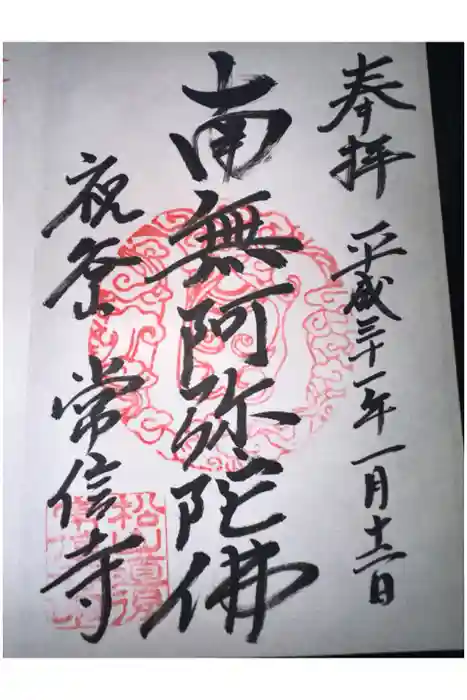 奉拝 平成三十一年一月十二日
南無阿弥陀佛
祝谷 常信寺
松山道後